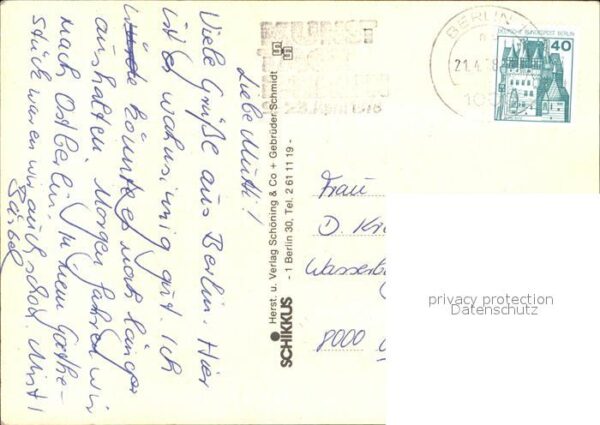 Liebe Mutti!
Viele Grüße aus Berlin. Hier
ist es wahnsinnig gut. Ich
könnte es noch länger
aushalten. Morgen fahren wir
nach Ostberlin. In nem Goethe-
Stück waren wir auch schon.
Bärbel
SCHIKKUS
Herst. u. Verlag Schöning & Co + Gebrüder Schmidt
- 1 Berlin 30, Tel. 2 61 11 19 -
BERLIN
21.4.78
DEUTSCHE BUNDESPOST BERLIN
40
Frau
D.
8000
privacy protection
Datenschutz